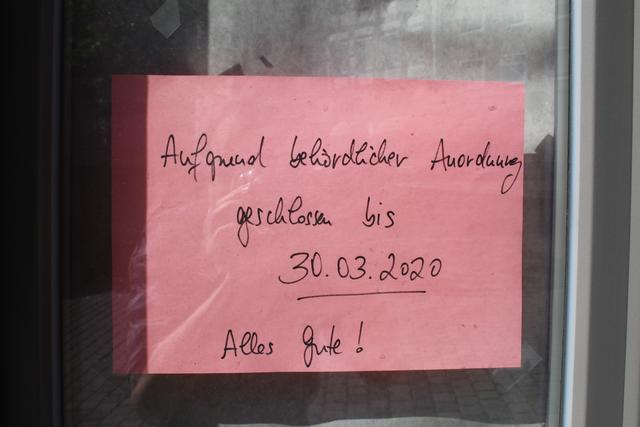 Aufgrund behördlicher Anordnung
geschlossen bis
30.03.2020
Alles Gute!